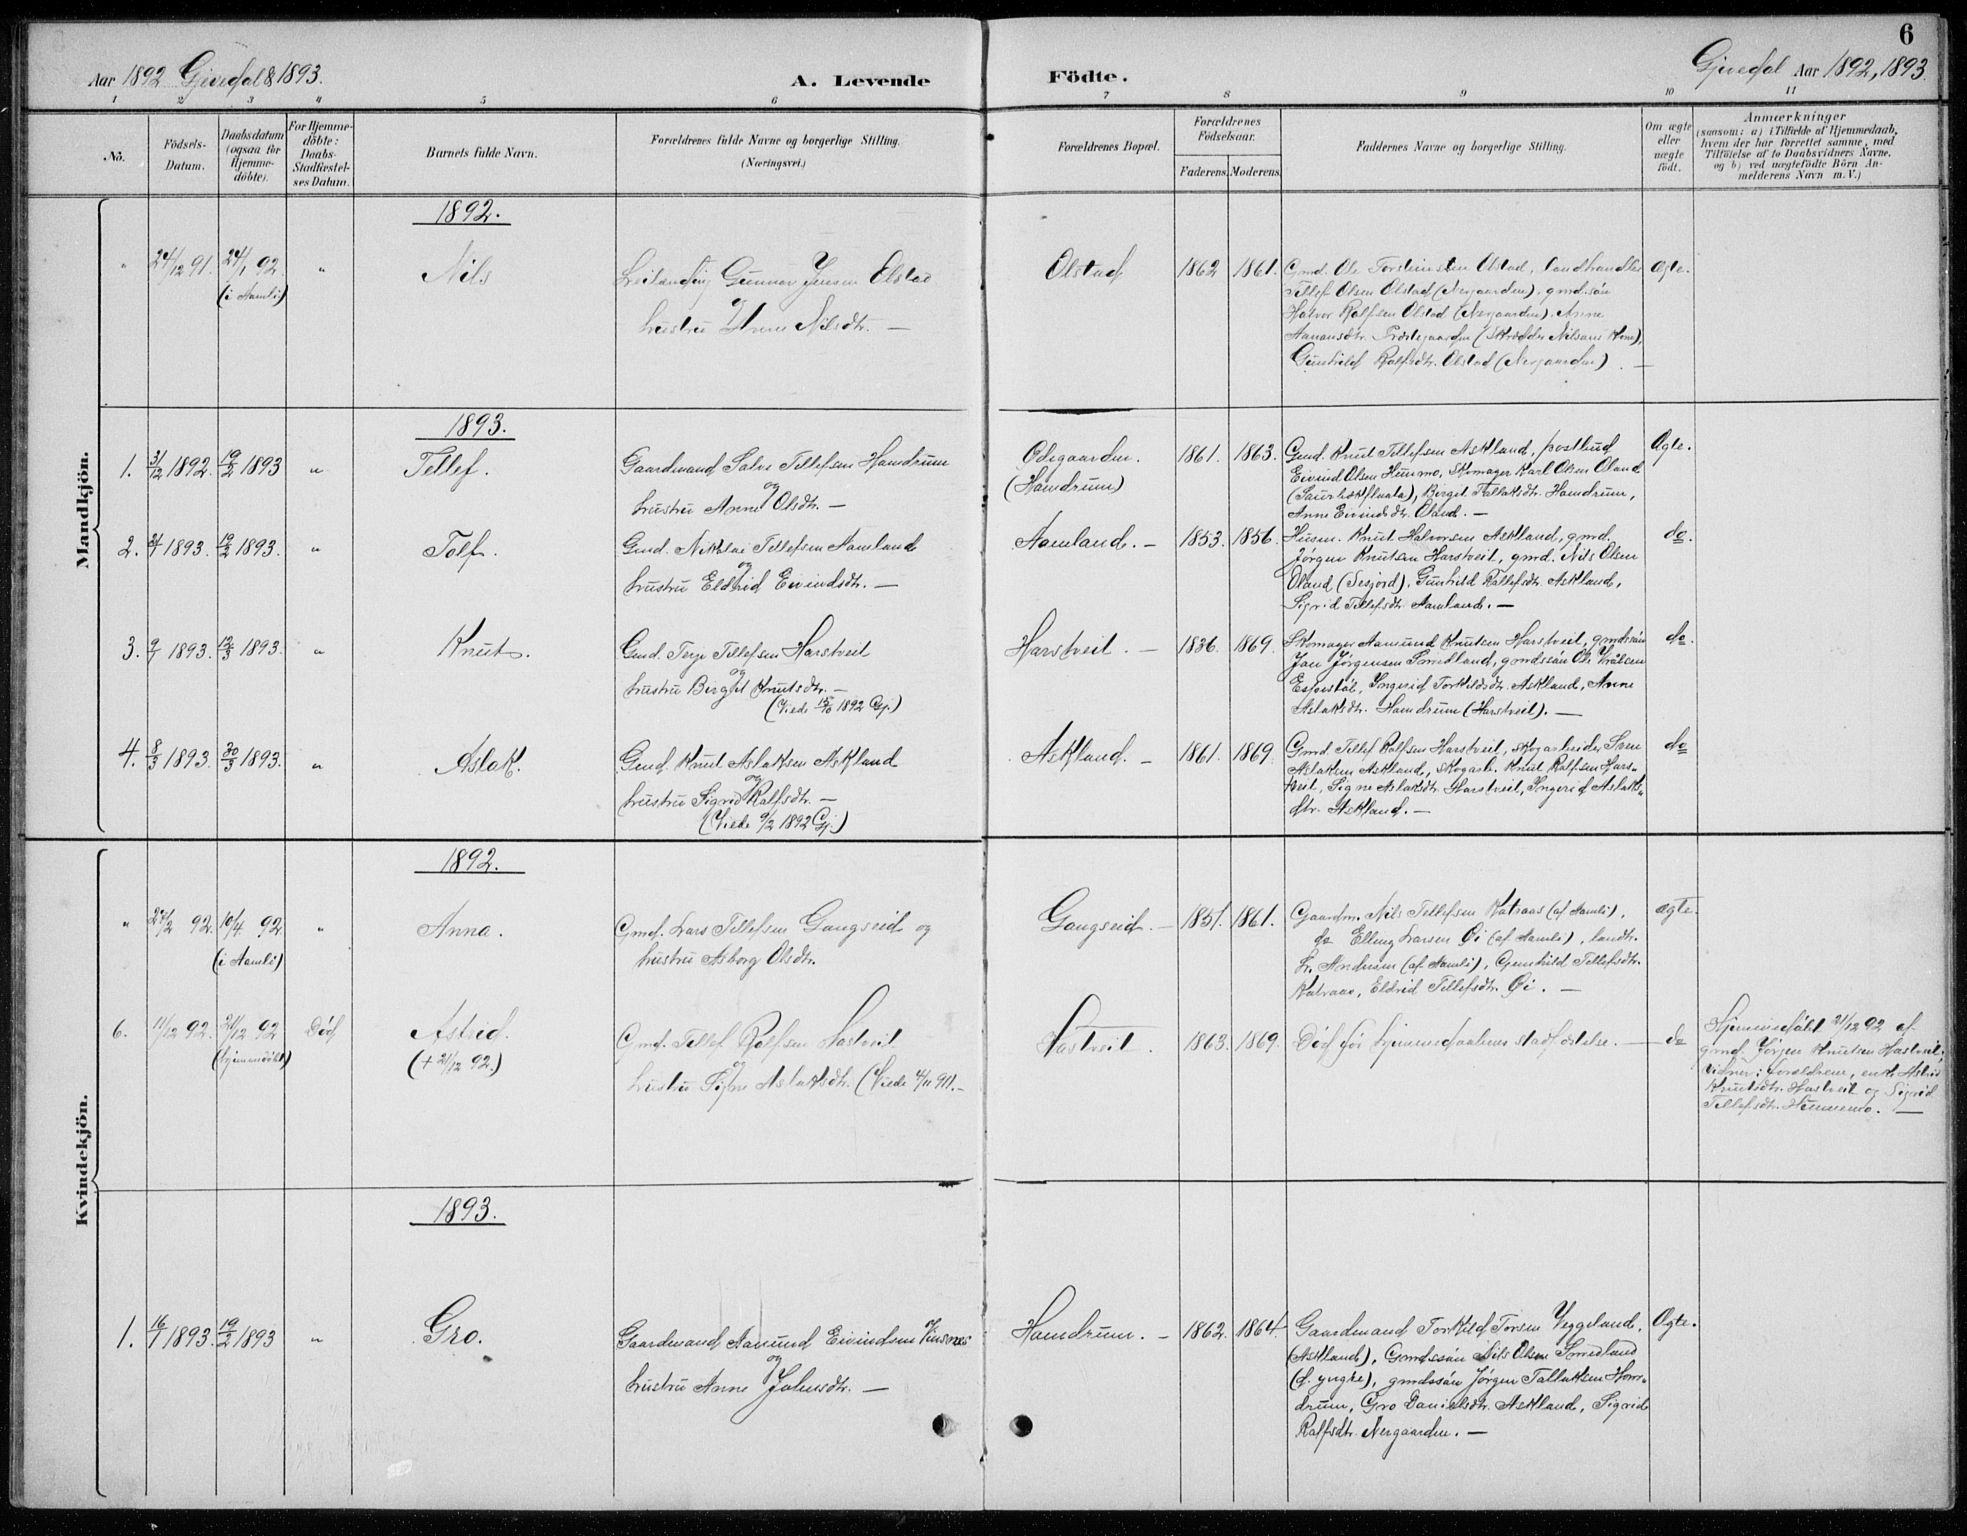 6
Aar 1892 Gjevedal & 1893.
A. Levende Födte.
Gjevedal Aar 1892, 1893.
1 2 3 4 5 6 7 8 9 10 11
No.
Födsels-Datum.
Daabsdatum (ogsaa for Hjemme-döbte).
For Hjemme-döbte: Daabs-Stadfæstel-ses Datum.
Barnets fulde Navn.
Forældrenes fulde Navne og borgerlige Stilling.
(Næringsvei.)
Forældrenes Bopæl.
Forældrenes Födselsaar.
Faderens. Moderens.
Faddernes Navne og borgerlige Stilling.
Om ægte eller uægte födt.
Anmærkninger
(saasom: a) i Tilfælde af Hjemmedaab,
hvem der har forrettet samme, med
Tilföielse af to Daabsvidners Navne,
og b) ved uægtefödte Börn An-
melderens Navn m. V.)
Mandkjön.
1892.
" 24/12 91. 24/1 92 (i Aamli) " Nils
Gunnar Jensen Olstad
og
hustru Anne Nilsdtr. —
Olstad 1862 1861.
Gmd. Ole Torsteinsen Olstad, landhandler
Tellef Olsen Olstad (Nergaarden), gmdssön
Halvor Rolfsen Olstad (Nergaarden), Anne
Aanonsdtr. Prestegaarden (Skrædder Nilsens Kone),
Gunhild Rolfsdtr. Olstad (Nergaarden). —
Ægte.
1893.
1. 31/12 1892. 19/2 1893 " Tellef.
Gaardmand Salve Tellefsen Hamdrum
og
hustru Anne Olsdtr. —
Ödegaarden. (Hamdrum) 1861. 1863.
Gmd. Knut Tellefsen Askland, postbud
Eivind Olsen Hunmo, Skomager Karl Olsen Öland
Birgit Tallaksdtr. Hamdrum,
Anne Eivindsdtr. Öland. —
Ægte.
2. 1893. 19/2 1893. " Tolf.
Gmd. Nikolai Tellefsen Aamland
og
hustru Eldrid Eivindsdtr. —
Aamland. — 1853. 1856.
Husm. Knut Halvorsen Askland, gmd.
Jørgen Knutsen Harstveit, gmd. Nils Olsen
Öland (Nesjord), Gunhild Rollefsdtr. Askland,
Sigrid Tellefsdtr. Aamland. —
do.
3. 9/1 1893. 12/3 1893. " Knut.
Gmd. Terje Tellefsen Harstveit
og
hustru Birgit Knutsdtr. —
(Viede 15/10 1892 Gj.)
Harstveit. — 1836. 1869.
Skomager Aamund Knutsen Harstveit, gmdssön
Jan Jörgensen Smedland, gmdssön Ole
Espestöl, Yngerid Torkildsdtr. Askland, Anne
Aslaksdtr. Hamdrum (Harstveit). —
do.
4. 8/3 1893. 30/3 1893. " Aslak.
Gmd. Knut Aslaksen Askland
og
hustru Sigrid Rolfsdtr. —
(Viede 9/2 1892 Gj.)
Askland. — 1861. 1869.
Gmd. Tellef Rolfsen Harstveit, skogarbeider Sven
Aslaksen Askland, skogarb. Knut Rolfsen Hars-
tveit, Signe Aslaksdtr. Harstveit, Yngerid Aslaks-
dtr. Askland. —
do
Kvindekjön.
1892.
" 27/2 92. 10/4 92 (i Aamli) " Anna.
Gmd. Lars Tellefsen Gangseid og
hustru Asborg Olsdtr.
Gangseid. — 1851. 1861.
Gaardm. Nils Tellefsen Katraas (af Aamli),
do Elling Larsen Öi (af Aamli), landh.
Andersen (af Aamli), Gunhild Tellefsdtr.
Katraas, Eldrid Tellefsdtr. Öi. —
ægte.
6. 11/12 92. 21/12 92 (hjemmedöbt) Död Astrid. (+ 21/12 92.)
Gmd. Tellef Rolfsen Hastveit
og
hustru Signe Aslaksdtr. (Viede 4/11 91). —
Hastveit. 1863. 1869.
Död för hjemmedaabens stadfæstelse. —
do
Hjemmedöbt 21/12 92 af
gmd. Jörgen Knutsen Hastveit,
Vidner: forældrene, enke Astrid
Knutsdtr. Hastveit og Sigrid
Tellefsdtr. Hunnemo. —
1893.
1. 16/1 1893. 19/2 1893 " Gro.
Gaardmand Aanund Eivindsen
og
hustru Anne Johnsdtr. —
Hamdrum. — 1862. 1864.
Gaardmand Torkild Torsen Yggeland,
(Askland), Gmdssön Nils Olsen Smedland
(d. yngre), gmdssön Jörgen Tallaksen Ham-
drum, Gro Danielsdtr. Askland, Sigrid
Rolfsdtr. Nergaarden. —
Ægte.